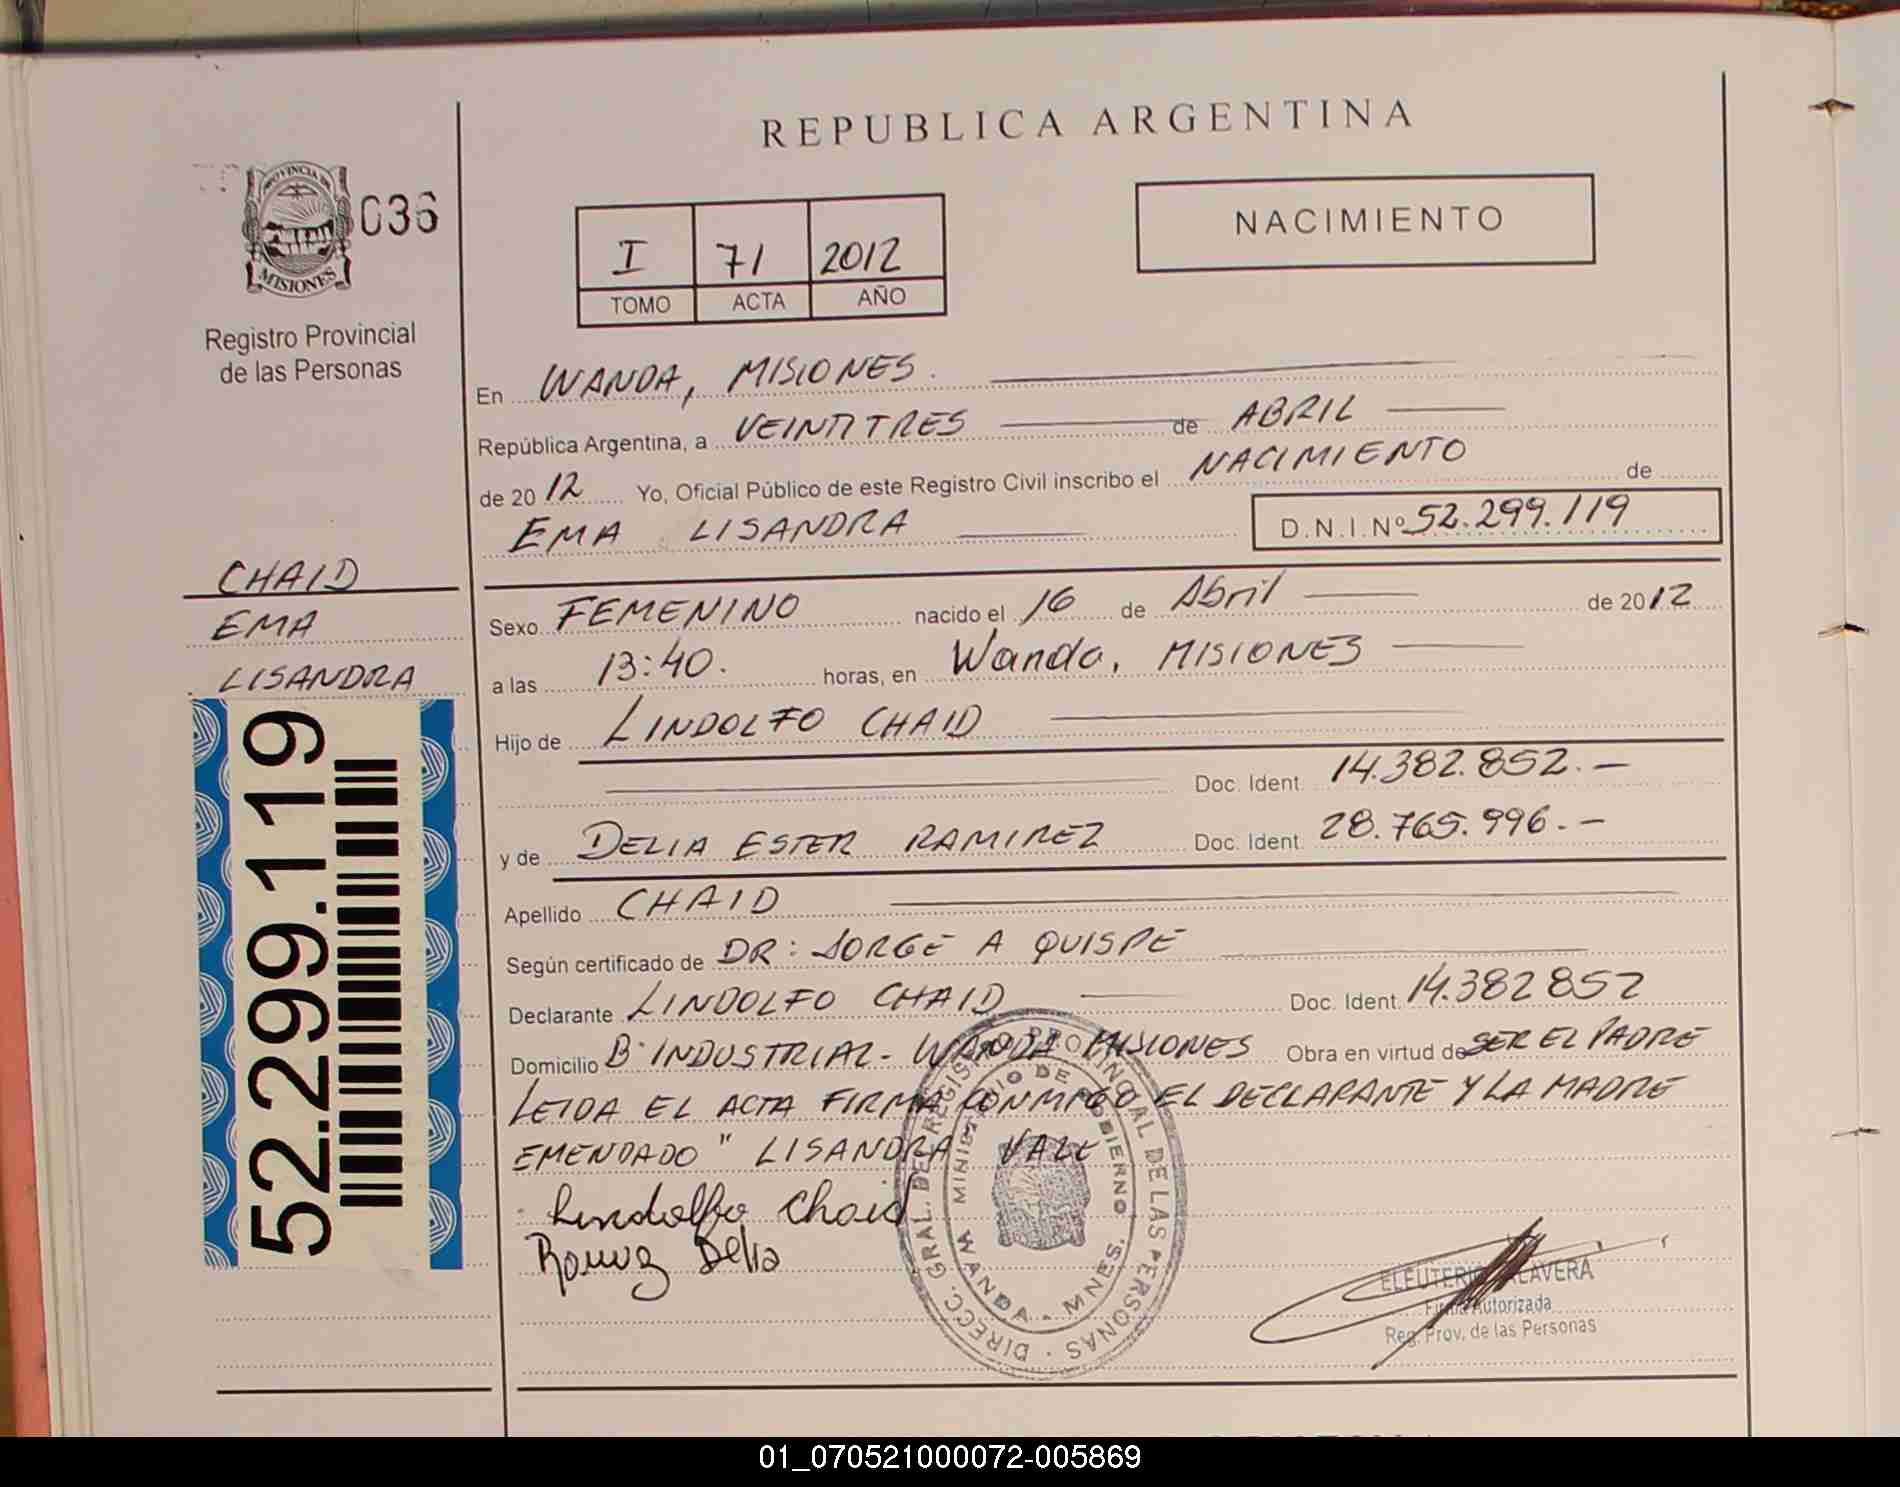 REPUBLICA ARGENTINA
PROVINCIA DE
MISIONES
036
Registro Provincial
de las Personas
I 71 2012
TOMO ACTA AÑO
NACIMIENTO
En WANDA, MISIONES.
República Argentina, a VEINTITRES de ABRIL
de 2012 Yo, Oficial Público de este Registro Civil inscribo el NACIMIENTO de
EMA LISANDRA D.N.I.Nº 52.299.119
CHAID
EMA
LISANDRA
52.299.119
Sexo FEMENINO nacido el 16 de Abril de 2012
a las 13:40. horas, en Wanda, MISIONES
Hijo de LINDOLFO CHAID
Doc. Ident. 14.382.852.-
y de DELIA ESTER RAMIREZ Doc. Ident. 28.765.996.-
Apellido CHAID
Según certificado de DR: JORGE A QUISPE
Declarante LINDOLFO CHAID Doc. Ident. 14.382852
Domicilio Bº INDUSTRIAL - WANDA MISIONES Obra en virtud de SER EL PADRE
LEIDA EL ACTA FIRMA CONMIGO EL DECLARANTE Y LA MADRE
EMENDADO " LISANDRA VALE
Lindolfo Chaid
Delia
DIRECC. GRAL. DEL REGISTRO PROVINCIAL DE LAS PERSONAS
MINISTERIO DE GOBIERNO
WANDA - MNES.
ELEUTERIO TALAVERA
Firma Autorizada
Reg. Prov. de las Personas
01_070521000072-005869